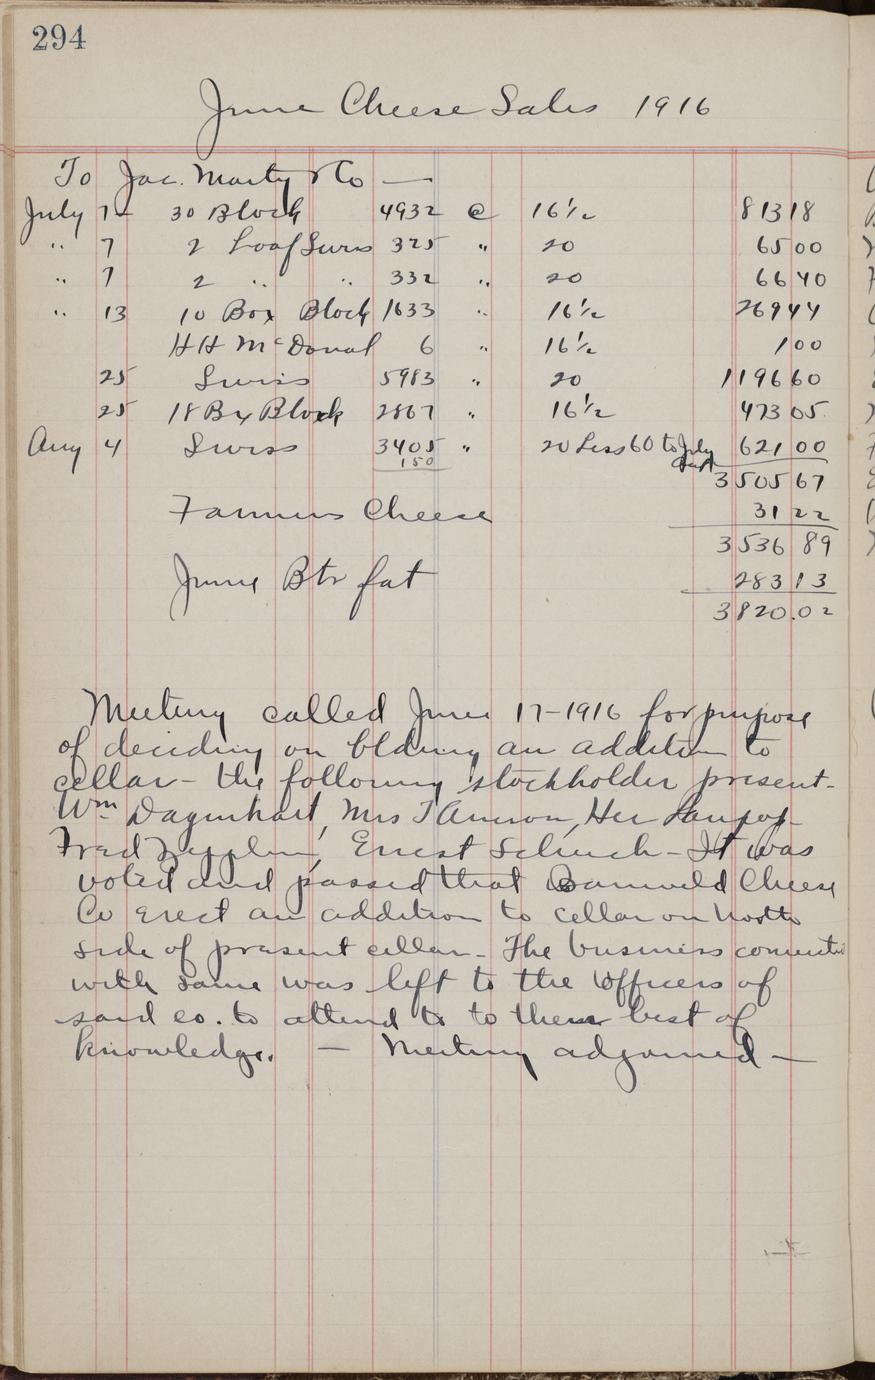 294
June Cheese Sales 1916
To Jac. Marty & Co —
July 7 30 Block 4932 @ 16½ 813 18
" 7 2 Loaf Swiss 325 " 20 65 00
" 7 2 " " 332 " 20 66 40
" 13 10 Box Block 1633 " 16½ 269 44
H H McDonal 6 " 16½ 1 00
25 Swiss 5983 " 20 1196 60
25 18 Bx Block 2867 " 16½ 473 05
Aug 4 Swiss 3405 " 20 Less 60 to July 621 00
150
3505 67
Farmers Cheese 31 22
3536 89
June Btr fat 283 13
3820.02
Meeting called June 17-1916 for purpose
of deciding on blding an addition to
cellar - the following stockholder present -
Wm Dagenhart, Mrs J Ameron, Her
Fred Zepplin, Ernest Schuch - It was
voted and passed that Barnveld Cheese
Co Erect an addition to cellar on North
side of present cellar - The business
with same was left to the officers of
said co. to attend to to their best of
knowledge. — Meeting adjorned —